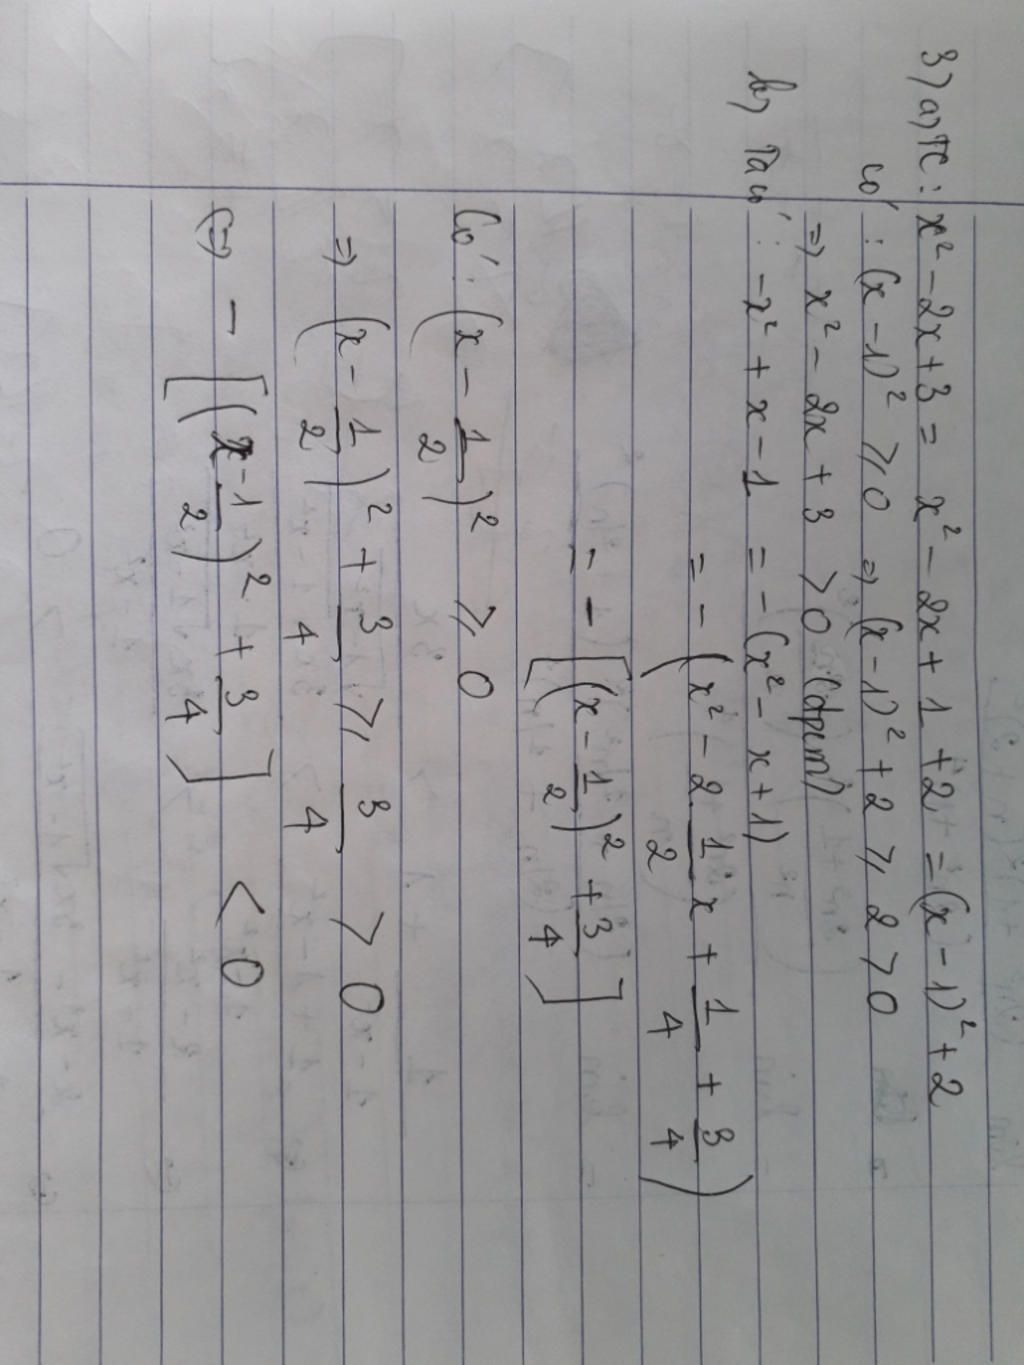 3) a) TC: x² - 2x + 3 = x² - 2x + 1 + 2 = (x - 1)² + 2
có: (x - 1)² ⩾ 0 => (x - 1)² + 2 ⩾ 2 > 0
=> x² - 2x + 3 > 0 (đpcm)
b) Ta có: -x² + x - 1 = - (x² - x + 1)
= - (x² - 2. 1/2 x + 1/4 + 3/4)
= - [(x - 1/2)² + 3/4]
Có: (x - 1/2)² ⩾ 0
=> (x - 1/2)² + 3/4 ⩾ 3/4 > 0
(=) - [(x - 1/2)² + 3/4] < 0